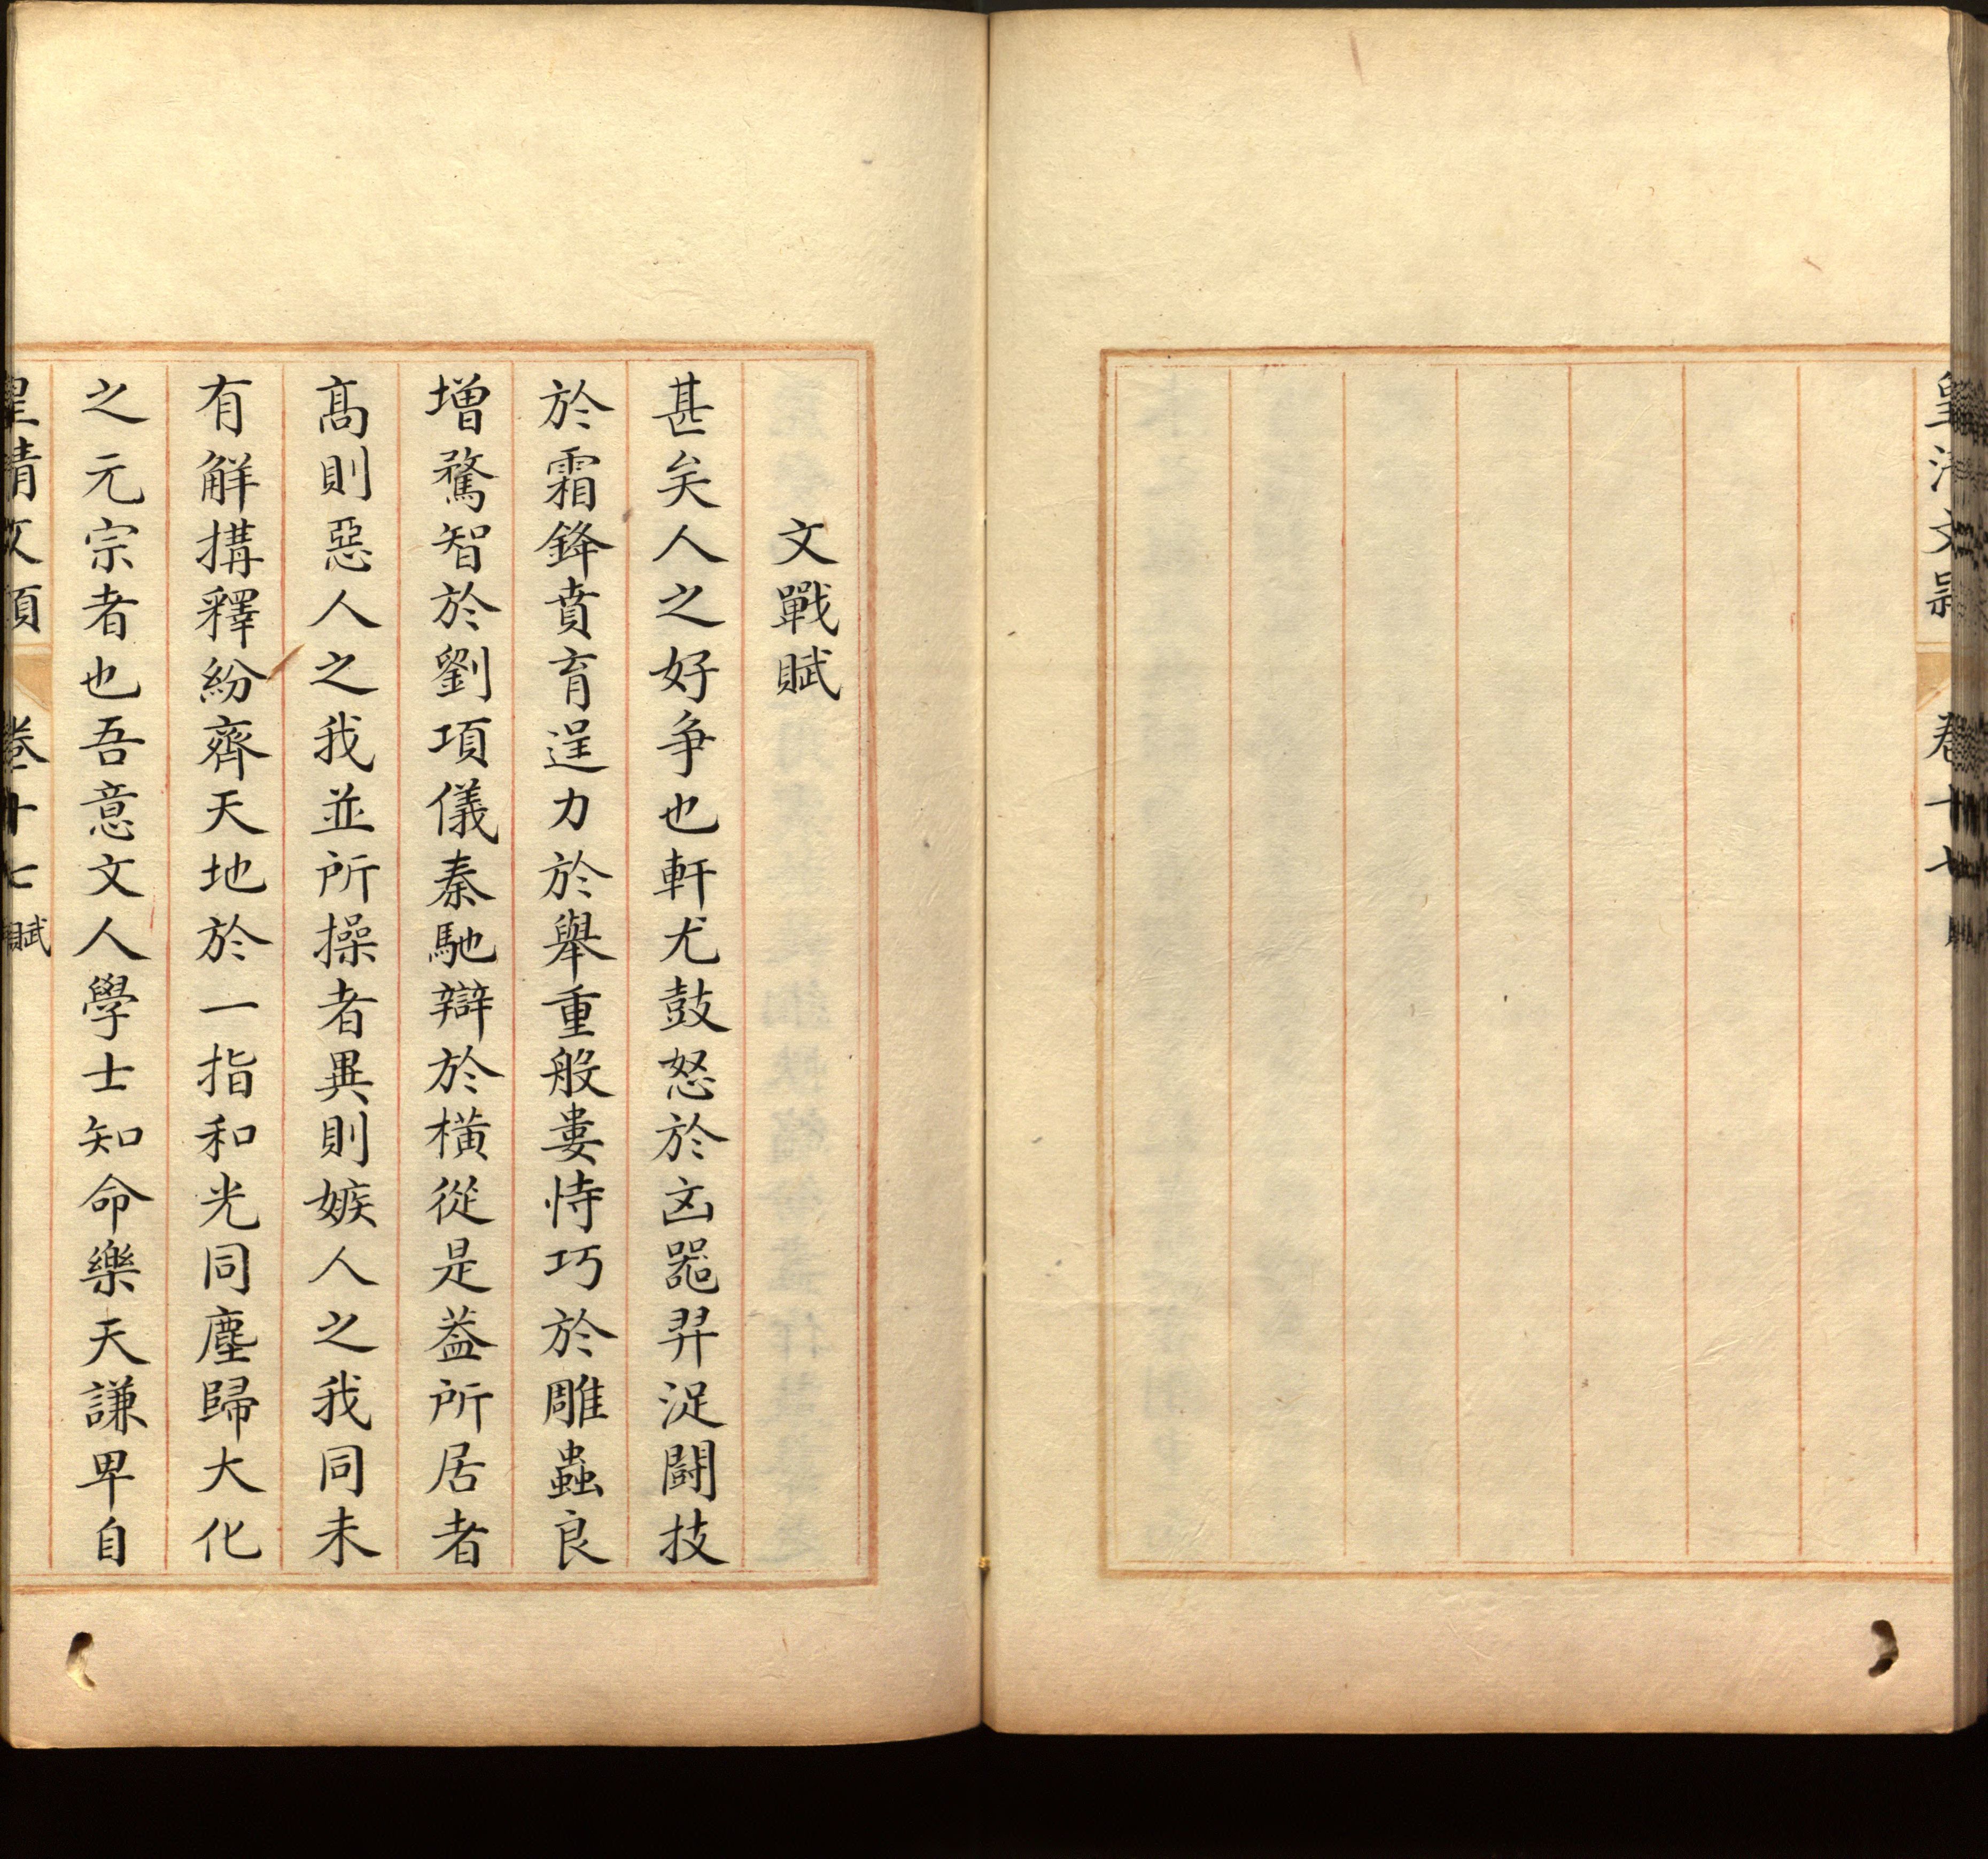 皇清文穎 卷十七
文戰賦
甚矣人之好争也軒尤鼓怒於㐫噐羿浞鬪技
於霜鋒賁育逞力於舉重般婁恃巧於雕蟲良
增騖智於劉項儀秦馳辯於橫從是葢所居者
高則惡人之我並所操者異則嫉人之我同未
有觧搆釋紛齊天地於一指和光同塵歸大化
之元宗者也吾意文人學士知命樂天謙卑自
皇清文穎 卷十七 賦